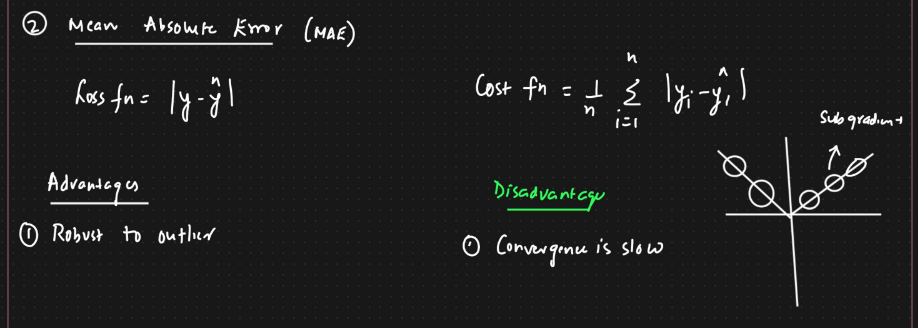 ② Mean Absolute Error (MAE)
Loss fn = |y - ŷ|
Cost fn = 1/n Σ_{i=1}^{n} |y_i - ŷ_i|
Subgradient
Advantages
① Robust to outlier
Disadvantage
① Convergence is slow